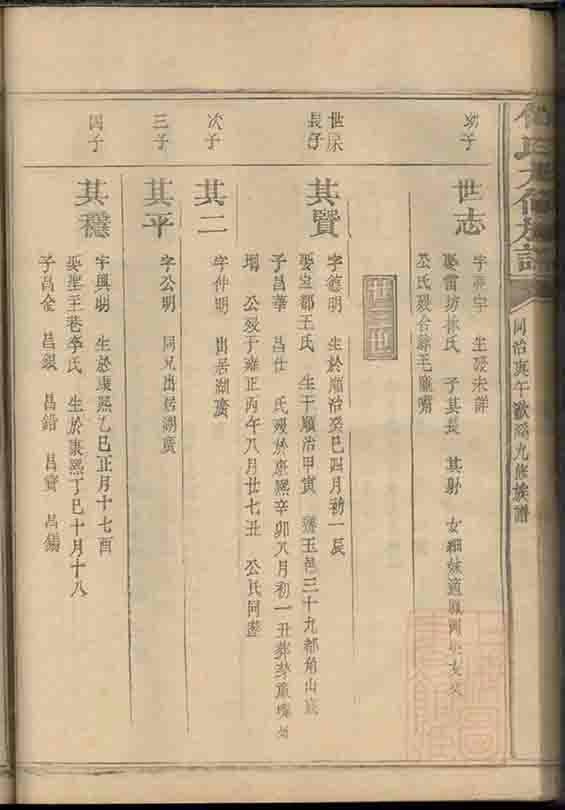 氏九修族譜
同治庚午歲 九修族譜
幼子
世志
字 宇 生歿未詳
娶雷坊林氏 子其長 其射 女細妹適
公氏歿合葬毛 嘴
廿三世
世
長子
其賢
字德明 生於順治癸巳四月初一辰
娶 郡王氏 生于順治甲寅 玉邑三十九都角山底
子昌華 昌仕 氏歿於康熙辛卯八月初一丑葬茅 嘴
公歿于雍正丙午八月廿七丑 公氏同
次子
其二
字仲明 出居湖廣
三子
其平
字公明 同兄出居湖廣
四子
其穩
字興明 生於康熙乙巳正月十七酉
娶聖王巷李氏 生於康熙丁巳十月十八
子昌金 昌銀 昌錯 昌寶 昌錫